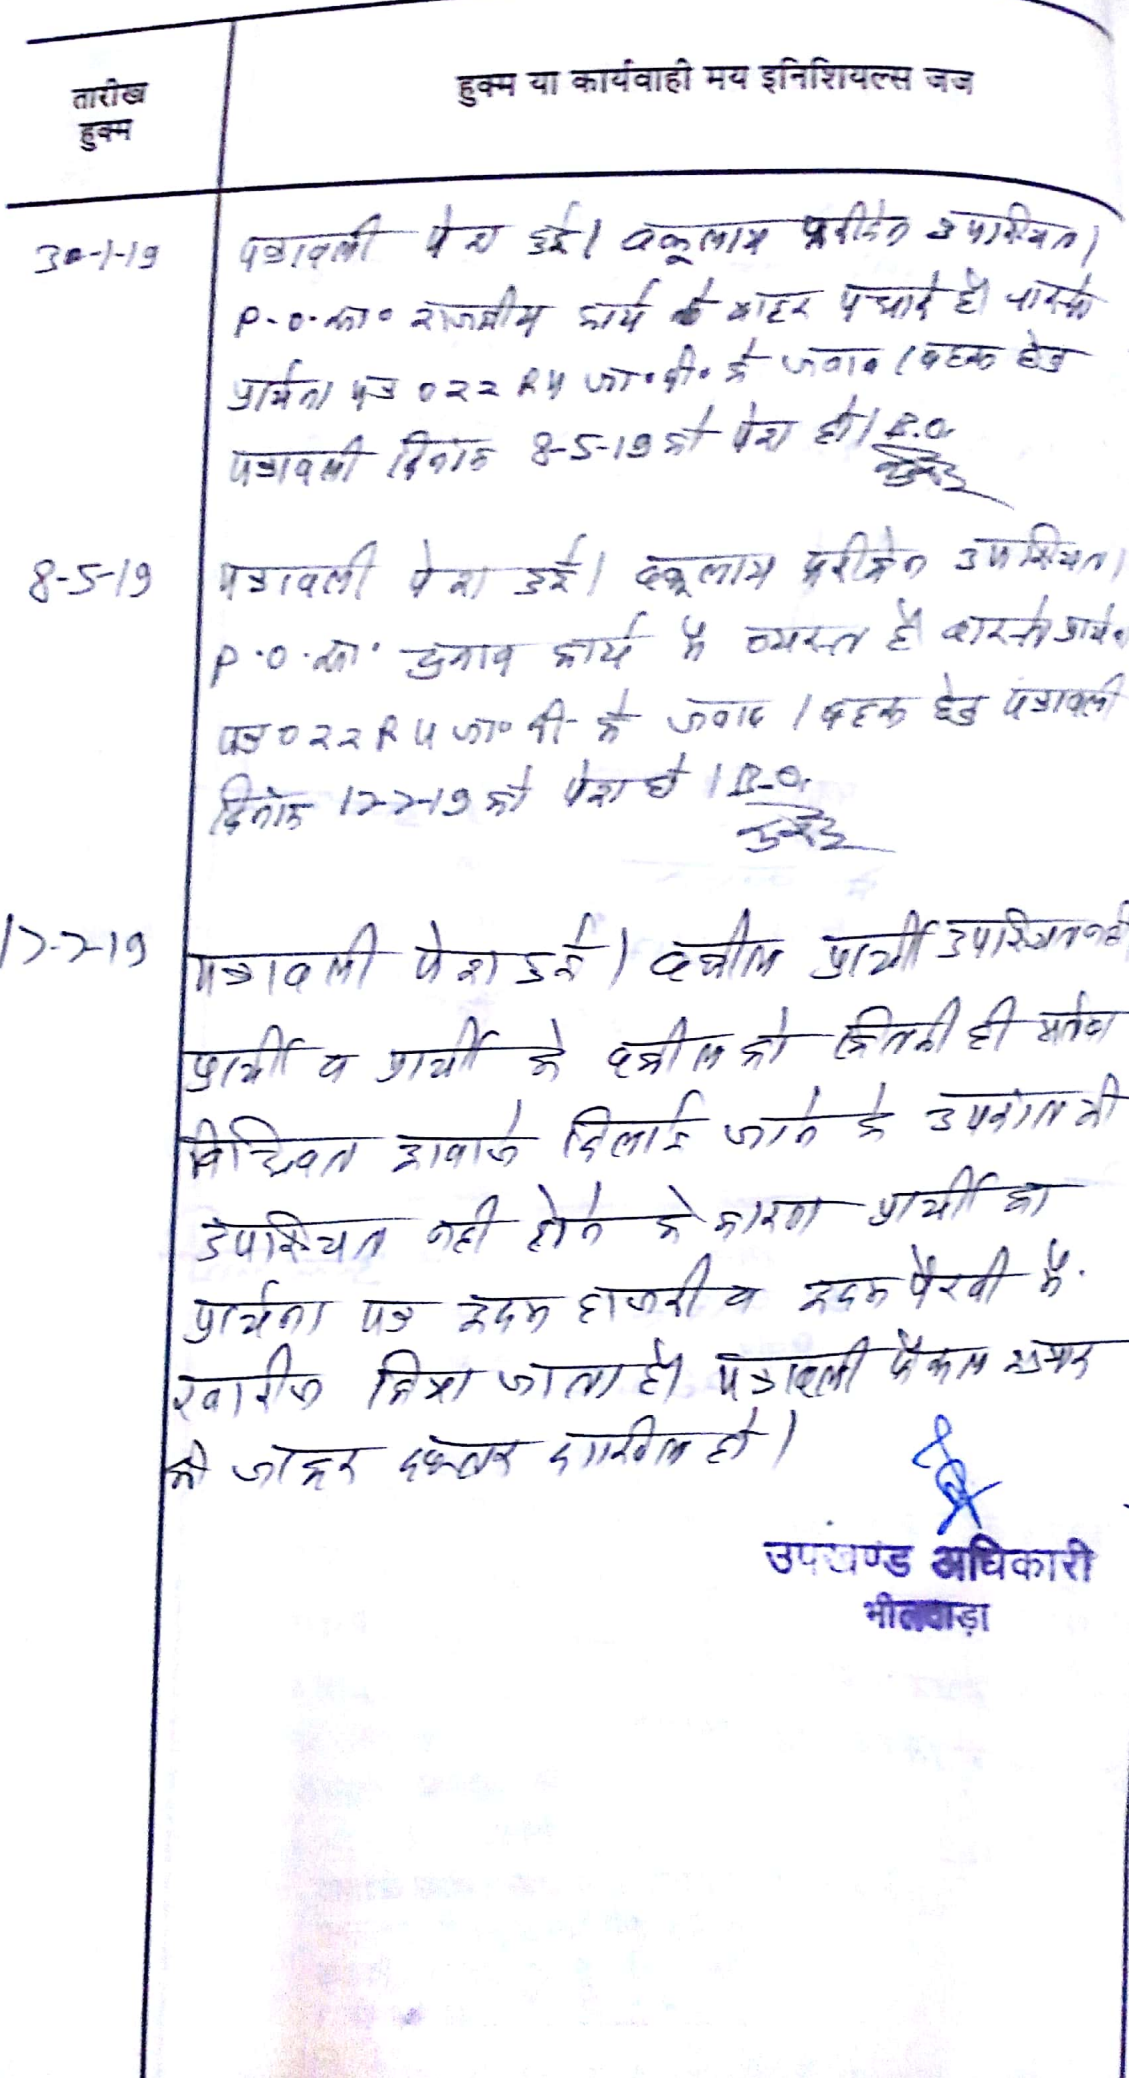 तारीख
हुक्म
हुक्म या कार्यवाही मय इनिशियल्स जज
30-1-19
पत्रावली पेश हुई। वकूलाय फरीकेन उपस्थित।
P.O. सा० राजकीय कार्य से बाहर पधारे है। वास्ते
प्रार्थना पत्र 022 R4 जा० दी० के जवाब / बहस हेतु
पत्रावली दिनांक 8-5-19 को पेश हो। B.O.
8-5-19
पत्रावली पेश हुई। वकूलाय फरीकेन उपस्थित।
P.O. सा० चुनाव कार्य में व्यस्त है। वास्ते प्रार्थना
पत्र 022 R4 जा० दी० के जवाब / बहस हेतु पत्रावली
दिनांक 17-7-19 को पेश हो। B.O.
17-7-19
पत्रावली पेश हुई। वकील प्रार्थी उपस्थित नही
प्रार्थी व प्रार्थी के वकील को कितनी ही मर्तबा
विधिवत आवाजे दिलाई जाने के उपरांत भी
उपस्थित नही होने के कारण प्रार्थी का
प्रार्थना पत्र अदम हाजरी व अदम पैरवी मे
खारीज किया जाता है। पत्रावली फैसल शुमार
की जाकर दफ्तर दाखिल हो।
उपखण्ड अधिकारी
भीलवाड़ा